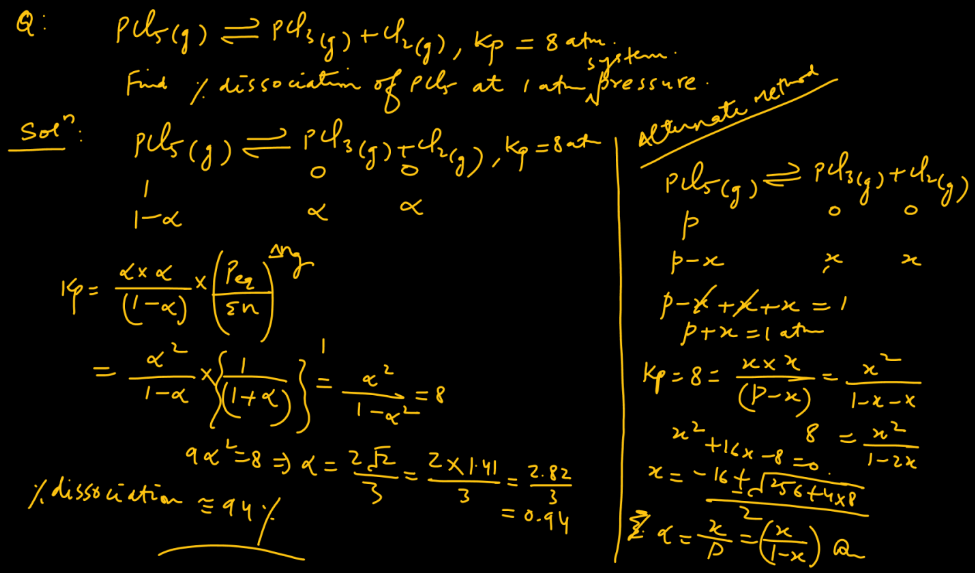 Q: PCl₅(g) ⇌ PCl₃(g) + Cl₂(g), Kp = 8 atm.
Find % dissociation of PCl₅ at 1 atm system pressure.
Solⁿ: PCl₅(g) ⇌ PCl₃(g) + Cl₂(g), Kp = 8 at
1 0 0
1-α α α
Kp = (α×α)/(1-α) × (Peq/Σn)^Δng
= α²/(1-α) × {1/(1+α)}¹ = α²/(1-α²) = 8
9α² = 8 ⇒ α = 2√2/3 = 2×1.41/3 = 2.82/3
= 0.94
% dissociation ≅ 94%
Alternate method
PCl₅(g) ⇌ PCl₃(g) + Cl₂(g)
p 0 0
p-x x x
p-x+x+x = 1
p+x = 1 atm
Kp = 8 = (x×x)/(p-x) = x²/(1-x-x)
8 = x²/(1-2x)
x²+16x-8=0
x = (-16±√(256+4×8))/2
α = x/p = (x/(1-x))